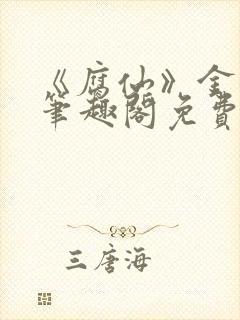 《腐仙》全
笔趣阁免费
三唐海